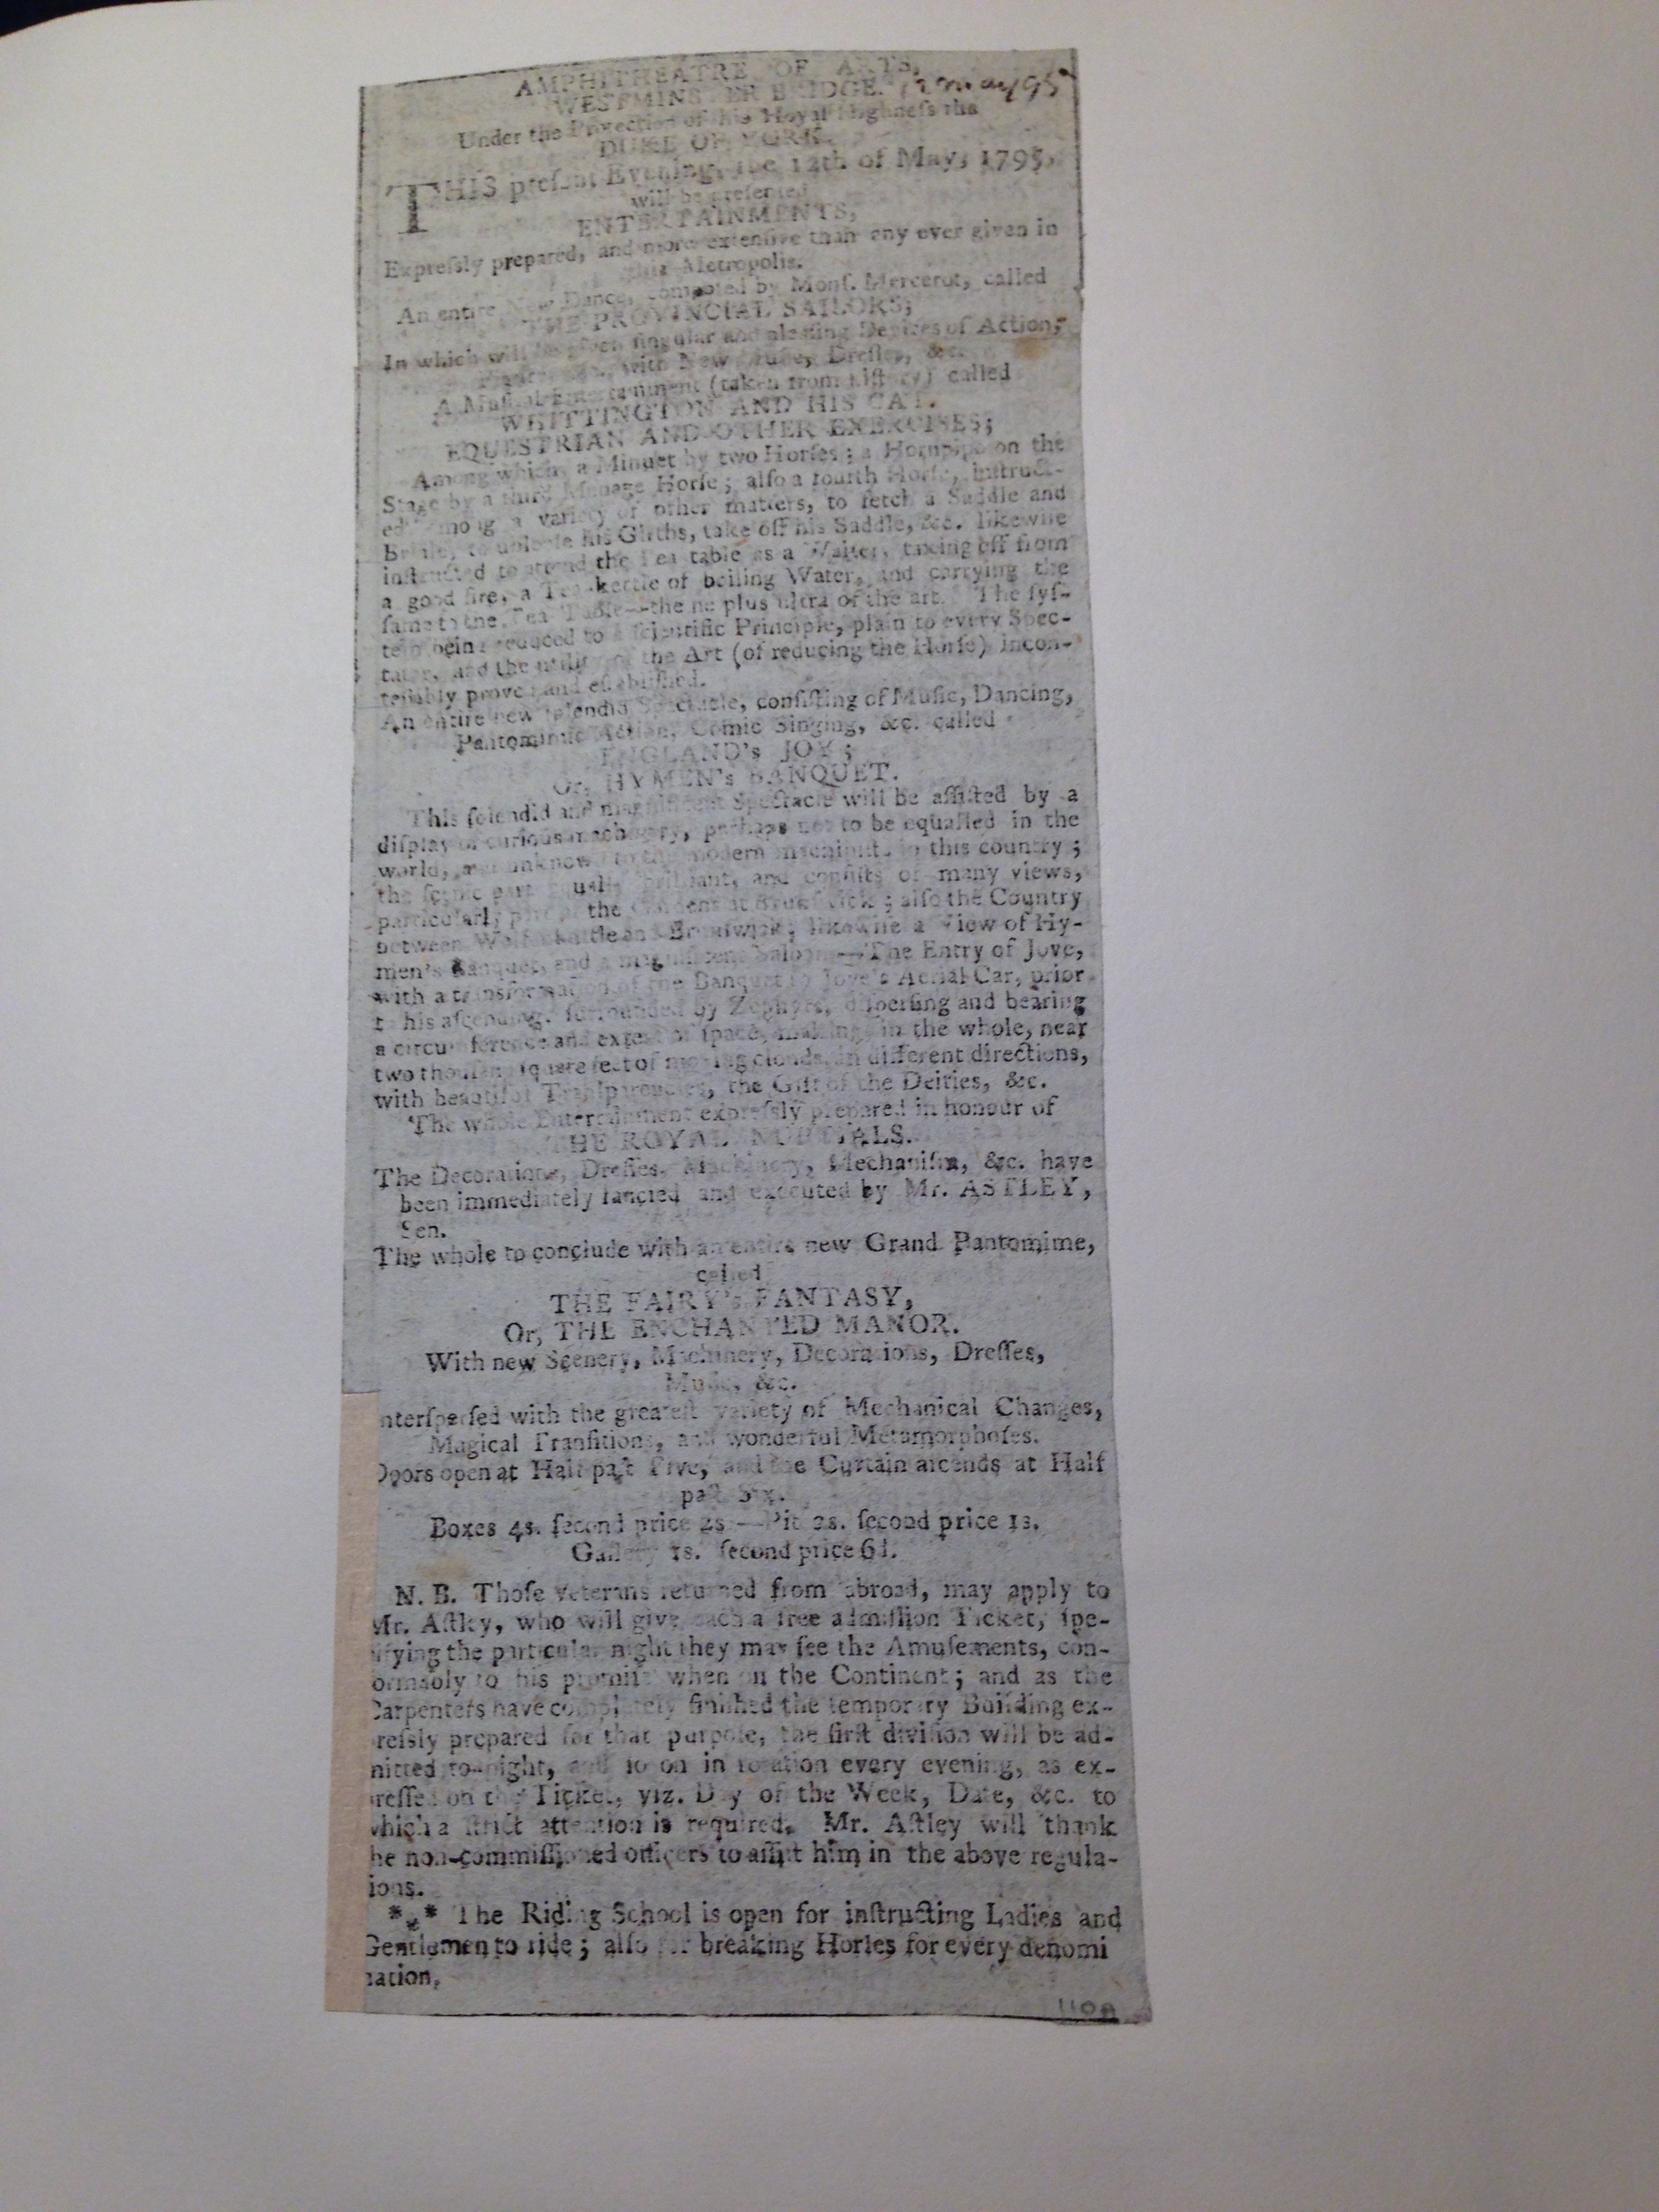 AMPHITHEATRE OF ARTS,
WESTMINSTER BRIDGE. 12 May 95
Under the Protection of his Royal Highneſs the
DUKE OF YORK.
THIS preſent Evening, the 12th of May, 1795,
will be preſented
ENTERTAINMENTS,
Expreſsly prepared, and more extenſive than any ever given in
this Metropolis.
An entire New Dance, compoſed by Monſ. Mercerot, called
THE PROVINCIAL SAILORS;
In which will be given ſingular and pleaſing Devices of Action,
with New Muſic, Dreſſes, &c.
A Muſical Entertainment (taken from Hiſtory) called
WHITTINGTON AND HIS CAT.
EQUESTRIAN AND OTHER EXERCISES;
Among which, a Minuet by two Horſes; a Hornpipe on the
Stage by a third Manage Horſe; alſo a fourth Horſe, inſtruct-
ed among a variety of other matters, to fetch a Saddle and
Bridle, to unlooſe his Girths, take off his Saddle, &c. likewiſe
inſtructed to attend the Tea table as a Waiter, taking off from
a good fire, a Tea-kettle of boiling Water, and carrying the
ſame to the Tea Table—the ne plus ultra of the art. The ſyſ-
tem being reduced to a ſcientific Principle, plain to every Spec-
tator, and the utility of the Art (of reducing the Horſe) incon-
teſtibly proved and eſtabliſhed.
An entire new ſplendid Spectacle, conſiſting of Muſic, Dancing,
Pantomimic Action, Comic Singing, &c. called
ENGLAND's JOY;
Or, HYMEN's BANQUET.
This ſplendid and magnificent Spectacle will be aſſiſted by a
diſplay of curious machinery, perhaps not to be equalled in the
world, and unknown to the modern machiniſts in this country;
the ſcenic part equally brilliant, and conſiſts of many views,
particularly part of the Gardens at Brunſwick; alſo the Country
between Wolfenbuttle and Brunſwick; likewiſe a View of Hy-
men's Banquet, and a magnificent Saloon—The Entry of Jove,
with a transformation of the Banquet to Jove's Aerial Car, prior
to his aſcending, ſurrounded by Zephyrs, diſperſing and bearing
a circumference and extent of ſpace, making, in the whole, near
two thouſand ſquare feet of moving clouds, in different directions,
with beautiful Tranſparencies, the Gift of the Deities, &c.
The whole Entertainment expreſsly prepared in honour of
THE ROYAL NUPTIALS.
The Decorations, Dreſſes, Machinery, Mechaniſm, &c. have
been immediately fancied and executed by Mr. ASTLEY,
Sen.
The whole to conclude with an entire new Grand Pantomime,
called
THE FAIRY's FANTASY,
Or, THE ENCHANTED MANOR.
With new Scenery, Machinery, Decorations, Dreſſes,
Muſic, &c.
nterſperſed with the greateſt variety of Mechanical Changes,
Magical Tranſitions, and wonderful Metamorphoſes.
Doors open at Half paſt Five, and the Curtain aſcends at Half
paſt Six.
Boxes 4s. ſecond price 2s.—Pit 2s. ſecond price 1s.
Gallery 1s. ſecond price 6d.
N. B. Thoſe Veterans returned from abroad, may apply to
Mr. Aſtley, who will give each a free admiſſion Ticket, ſpe-
ifying the particular night they may ſee the Amuſements, con-
ormably to his promiſe when on the Continent; and as the
Carpenters have completely finiſhed the temporary Building ex-
reſsly prepared for that purpoſe, the firſt diviſion will be ad-
mitted to-night, and ſo on in rotation every evening, as ex-
reſſed on the Ticket, viz. Day of the Week, Date, &c. to
which a ſtrict attention is required. Mr. Aſtley will thank
he non-commiſſioned officers to aſſiſt him in the above regula-
ions.
*⁎* The Riding School is open for inſtructing Ladies and
Gentlemen to ride; alſo for breaking Horſes for every denomi
nation.